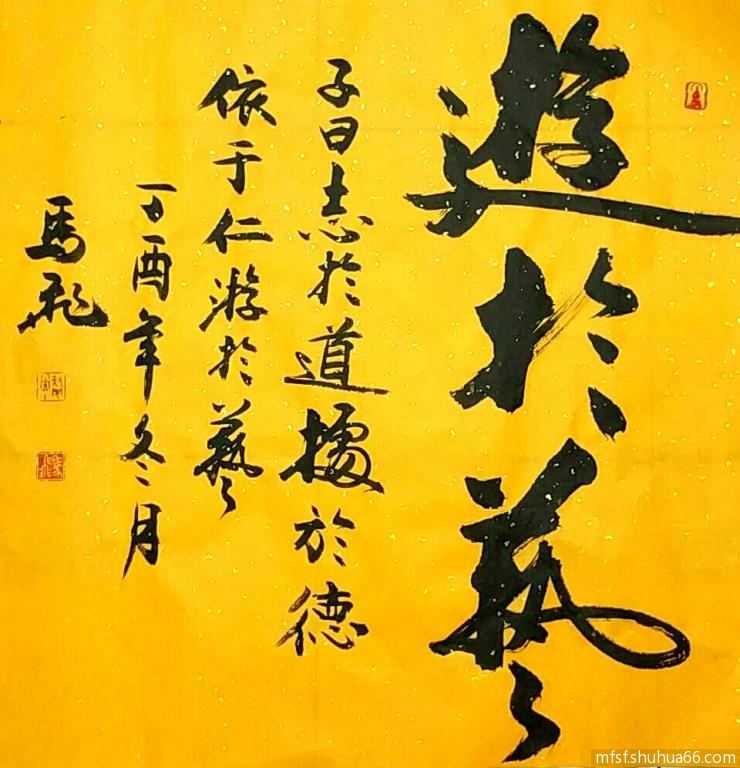 遊於藝
子曰志於道據於德
依于仁游於藝
丁酉年冬月
馬飛
mfsf.shuhua66.com